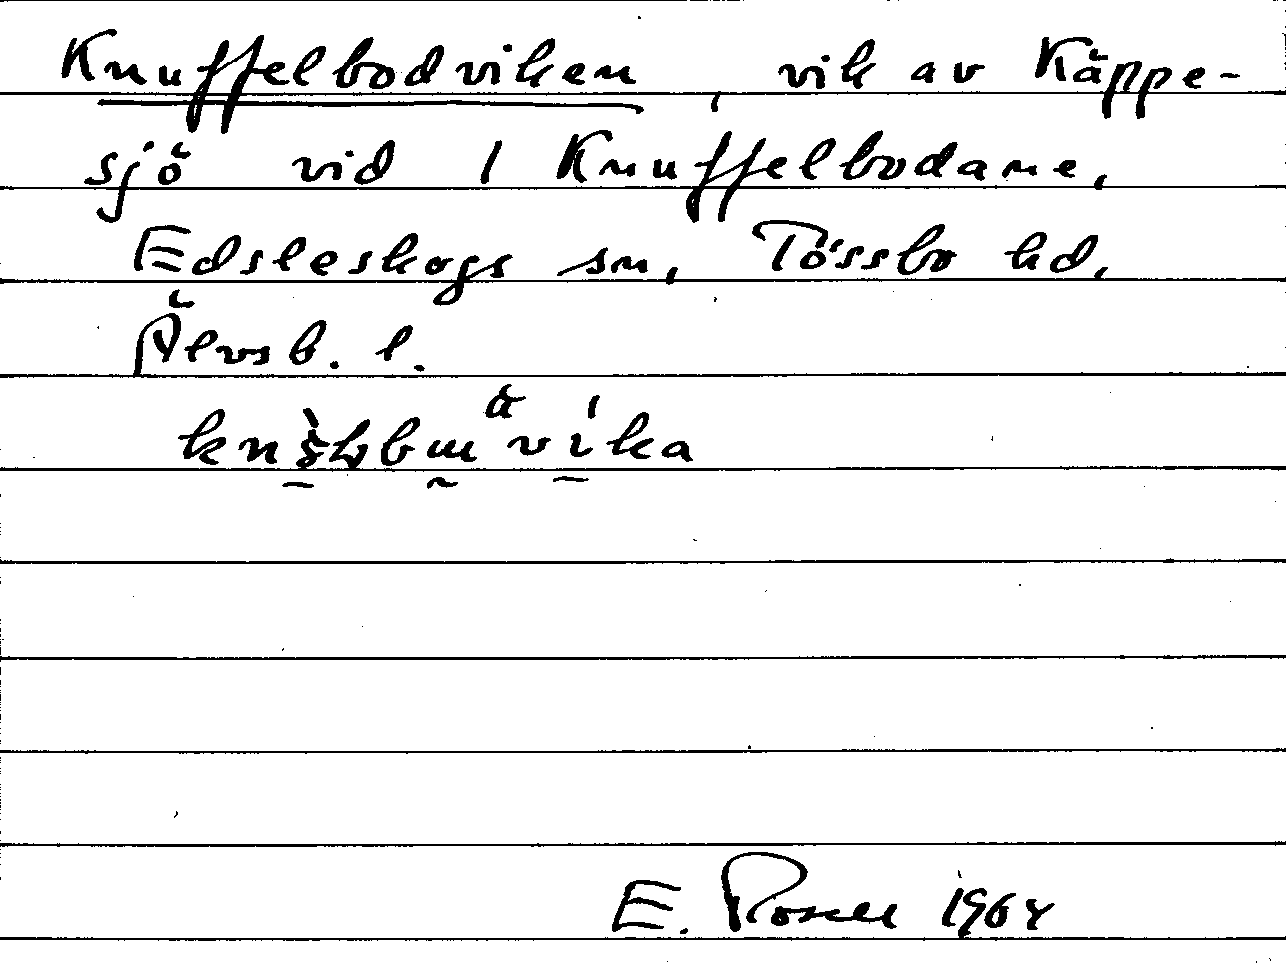 Knuffelbodviken, vik av Käppe-
sjö vid 1 Knuffelbodane,
Edsleskogs sn, Tössbo hd,
Älvsb. l.
E. Rosell 1964